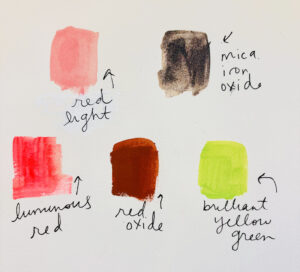 red
light
mica.
iron
oxide
luminous
red
red
oxide
brilliant
yellow
green